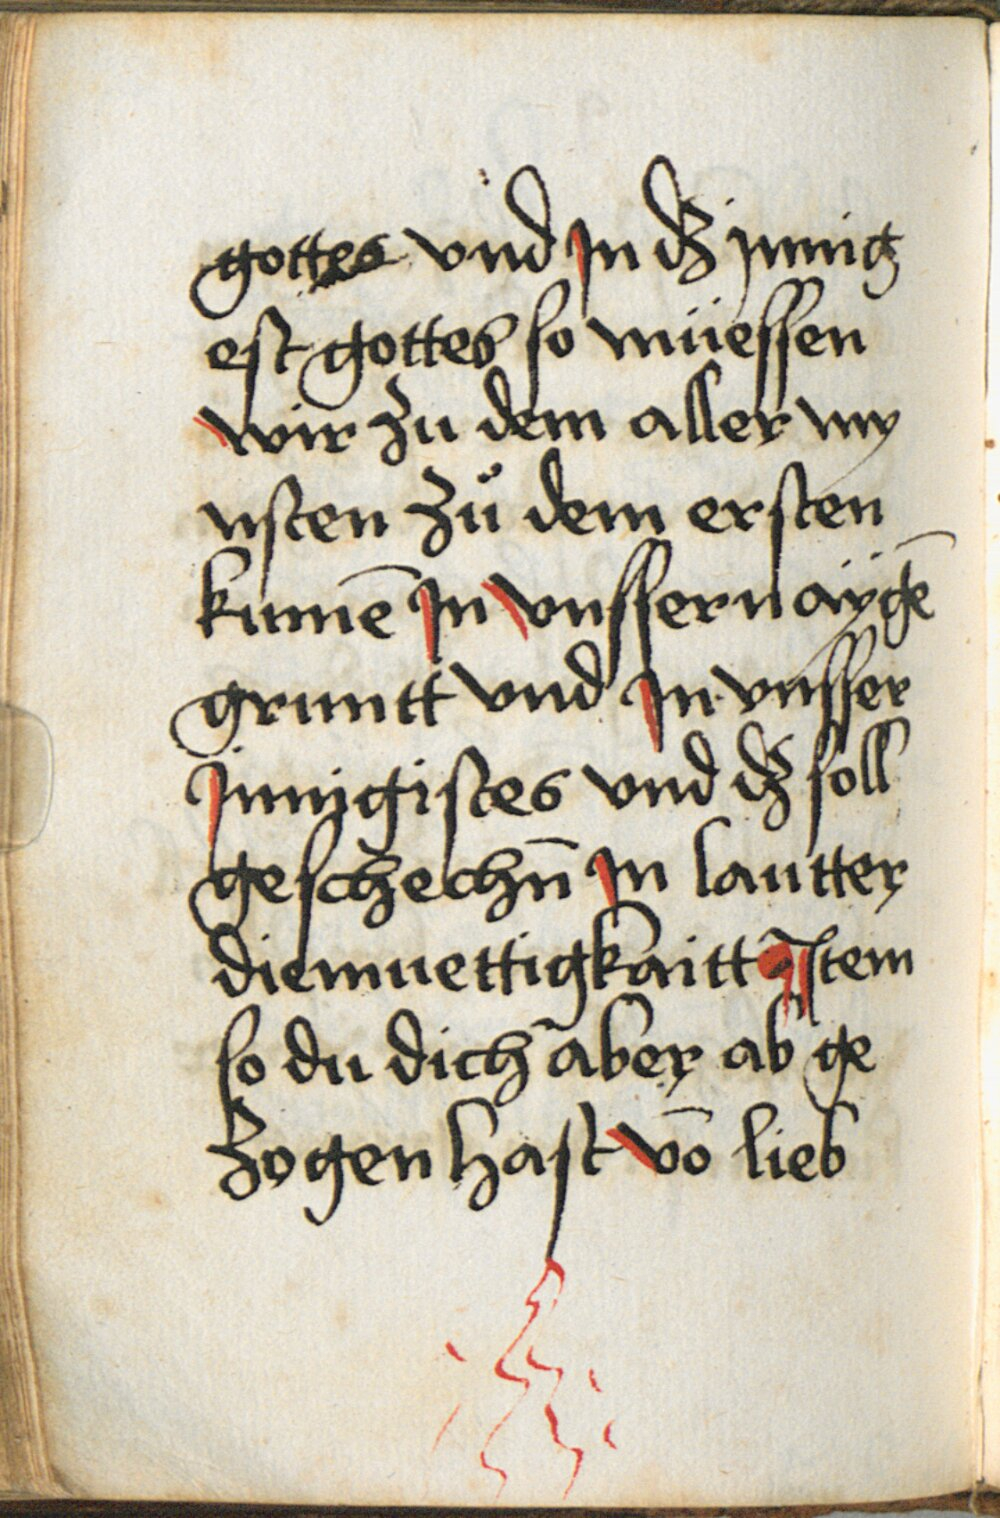 gottes vnd jn dz jnnig
est gottes so müessen
wir zu dem aller my
nsten zuͦ dem ersten
kumē jn vnssern aÿgē
gruntt vnd jn vnsser
jnnigistes vnd dz soll
geschechn̄ jn lautter
diemuettigkaitt Jtem
so du dich aber ab ge
zogen hast vō lieb